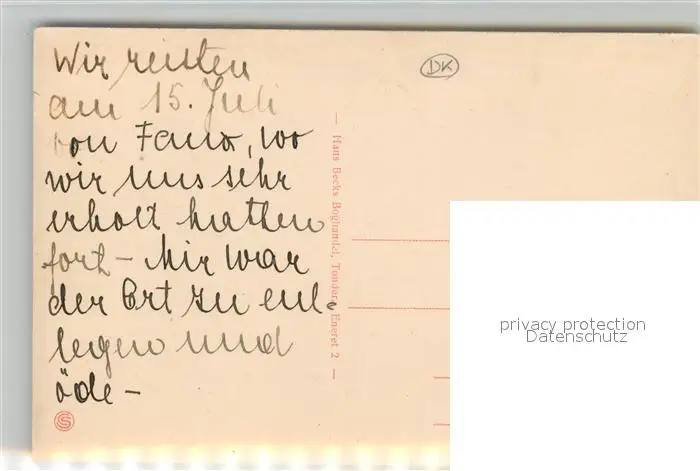 Wir reisten
am 15. Juli
von Fanö, wo
wir uns sehr
erholt hatten
fort – Mir war
der Ort zu ent-
legen und
öde –
DK
— Haus Becks Boghandel, Tonder. Eneret 2 —
privacy protection
Datenschutz